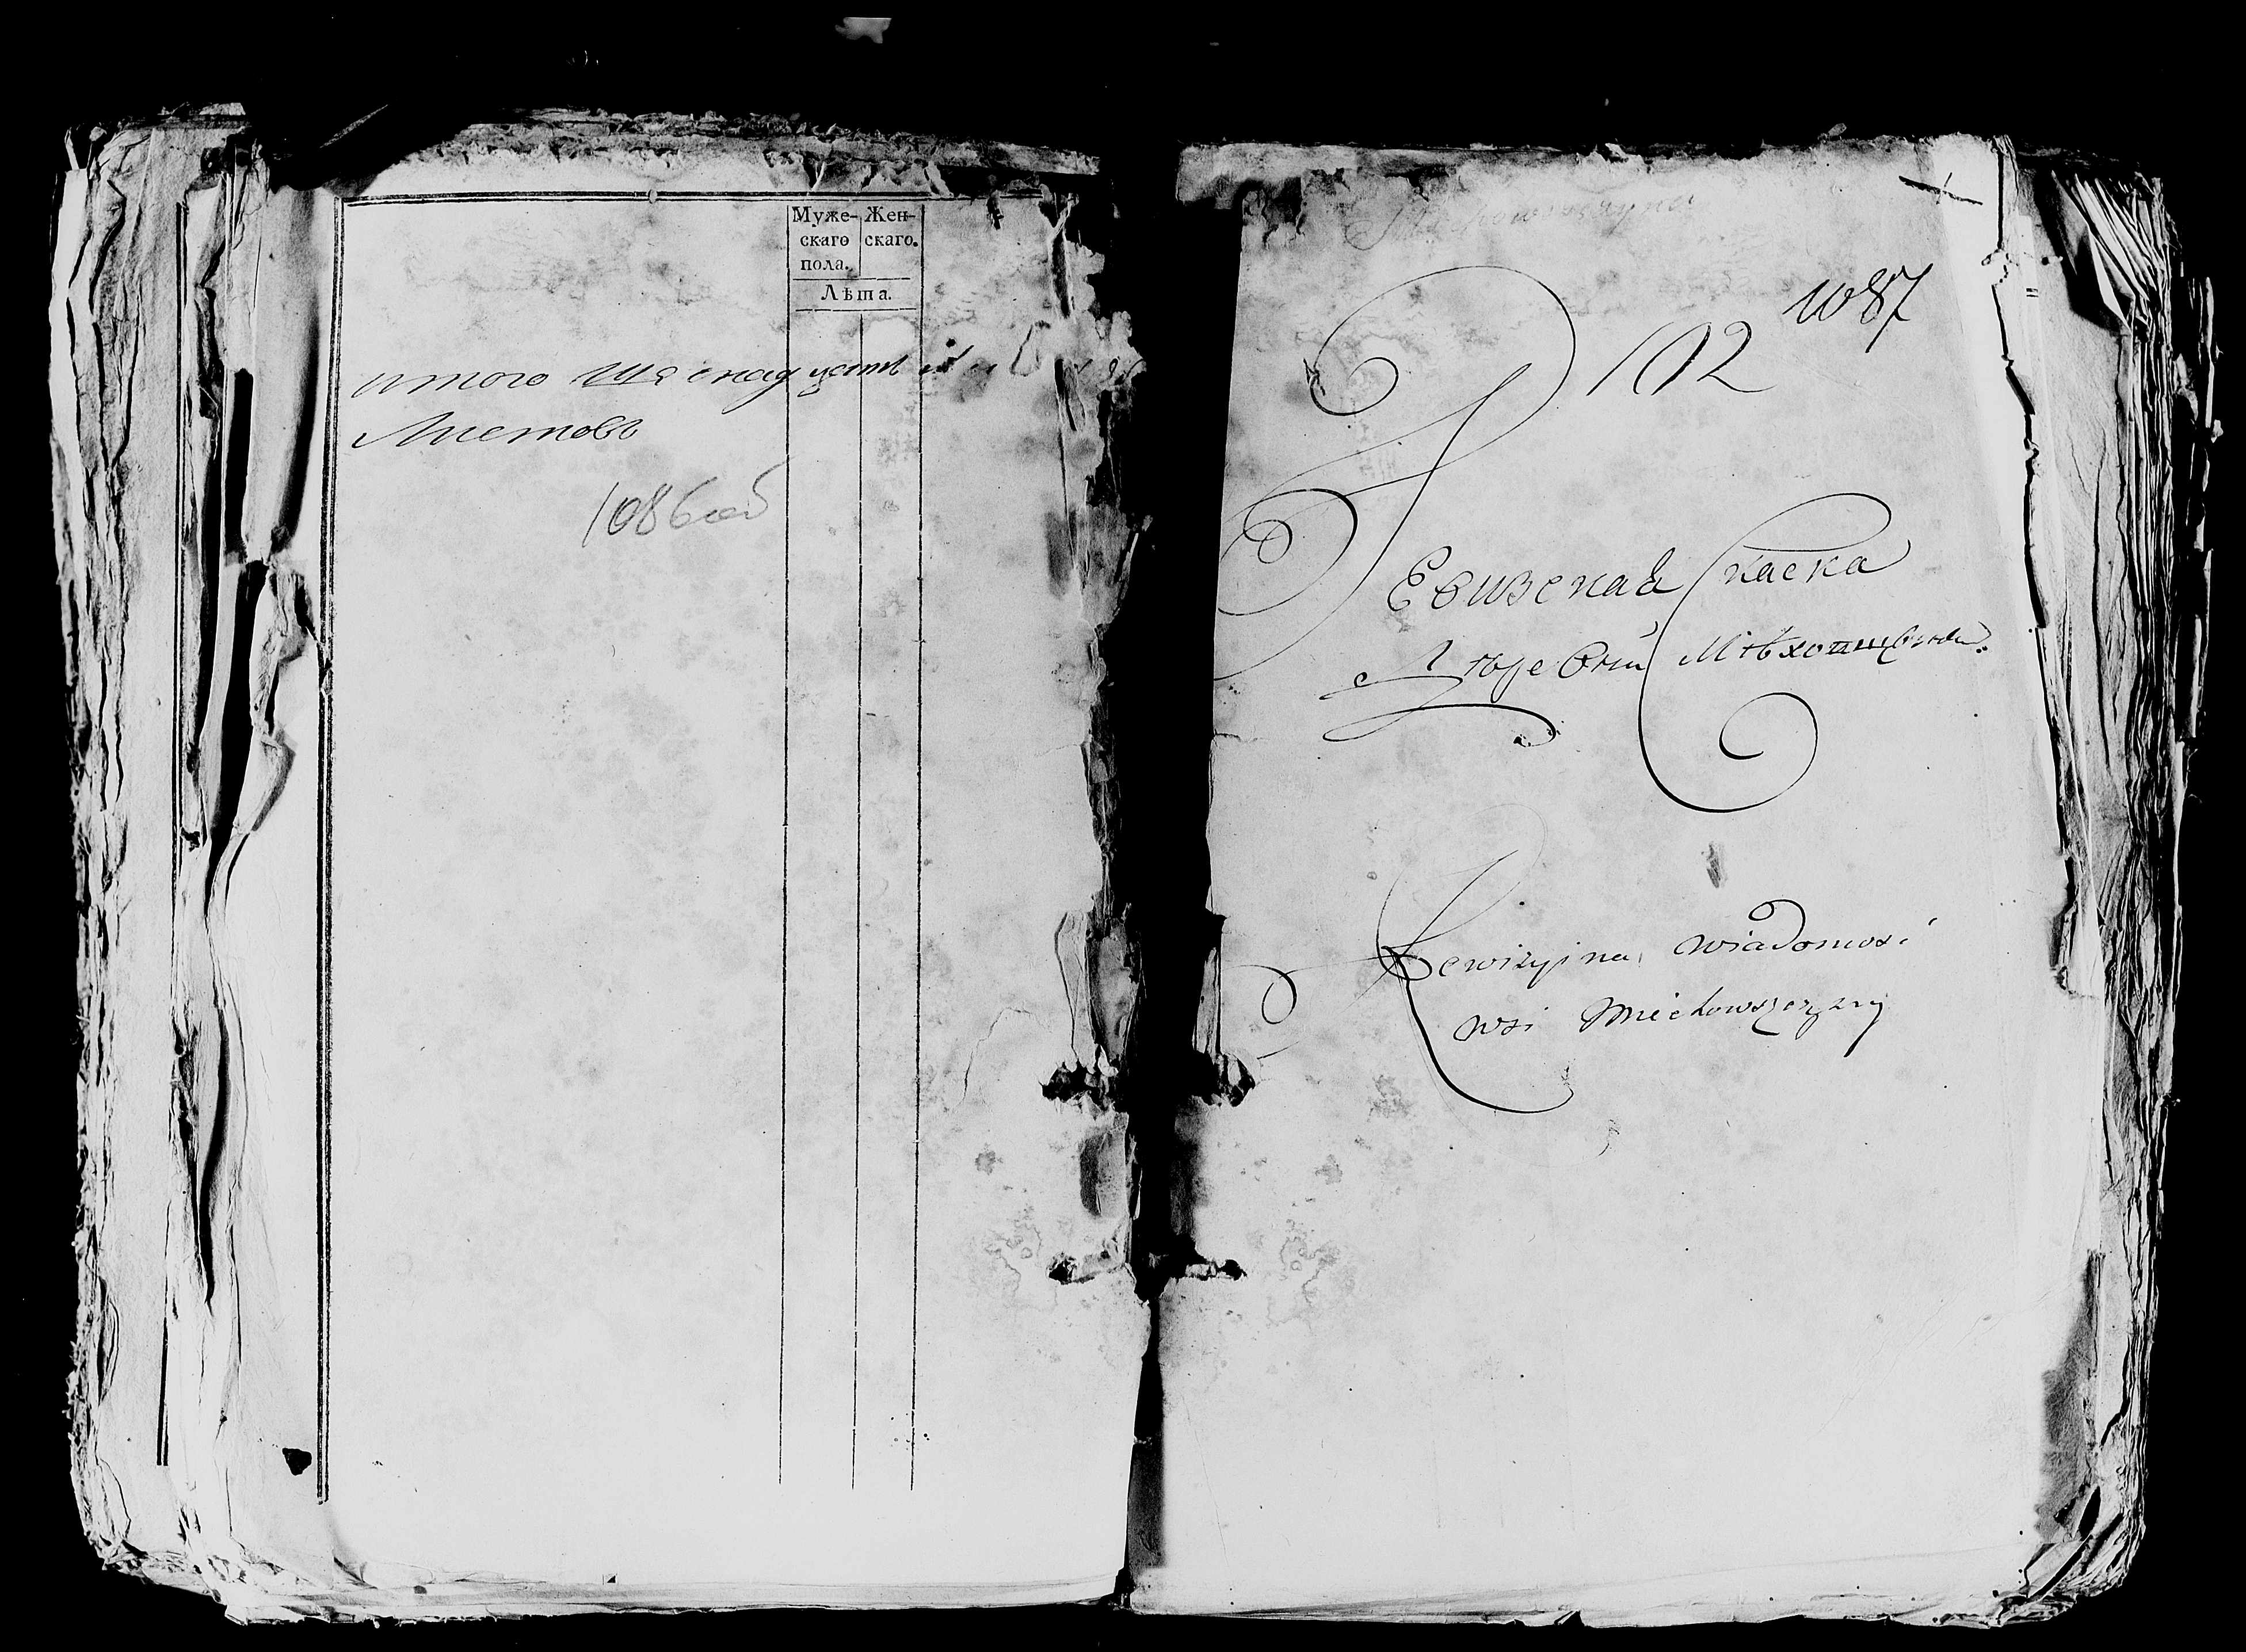 Муже-
скаго
пола.
Жен-
скаго.
Лѣта.
итого Шеснадцать
Листовъ
1086об
1087
102
Ревизская Скаска
деревни
Rewizyina wiadomosć
wsi Miechowszczyzny